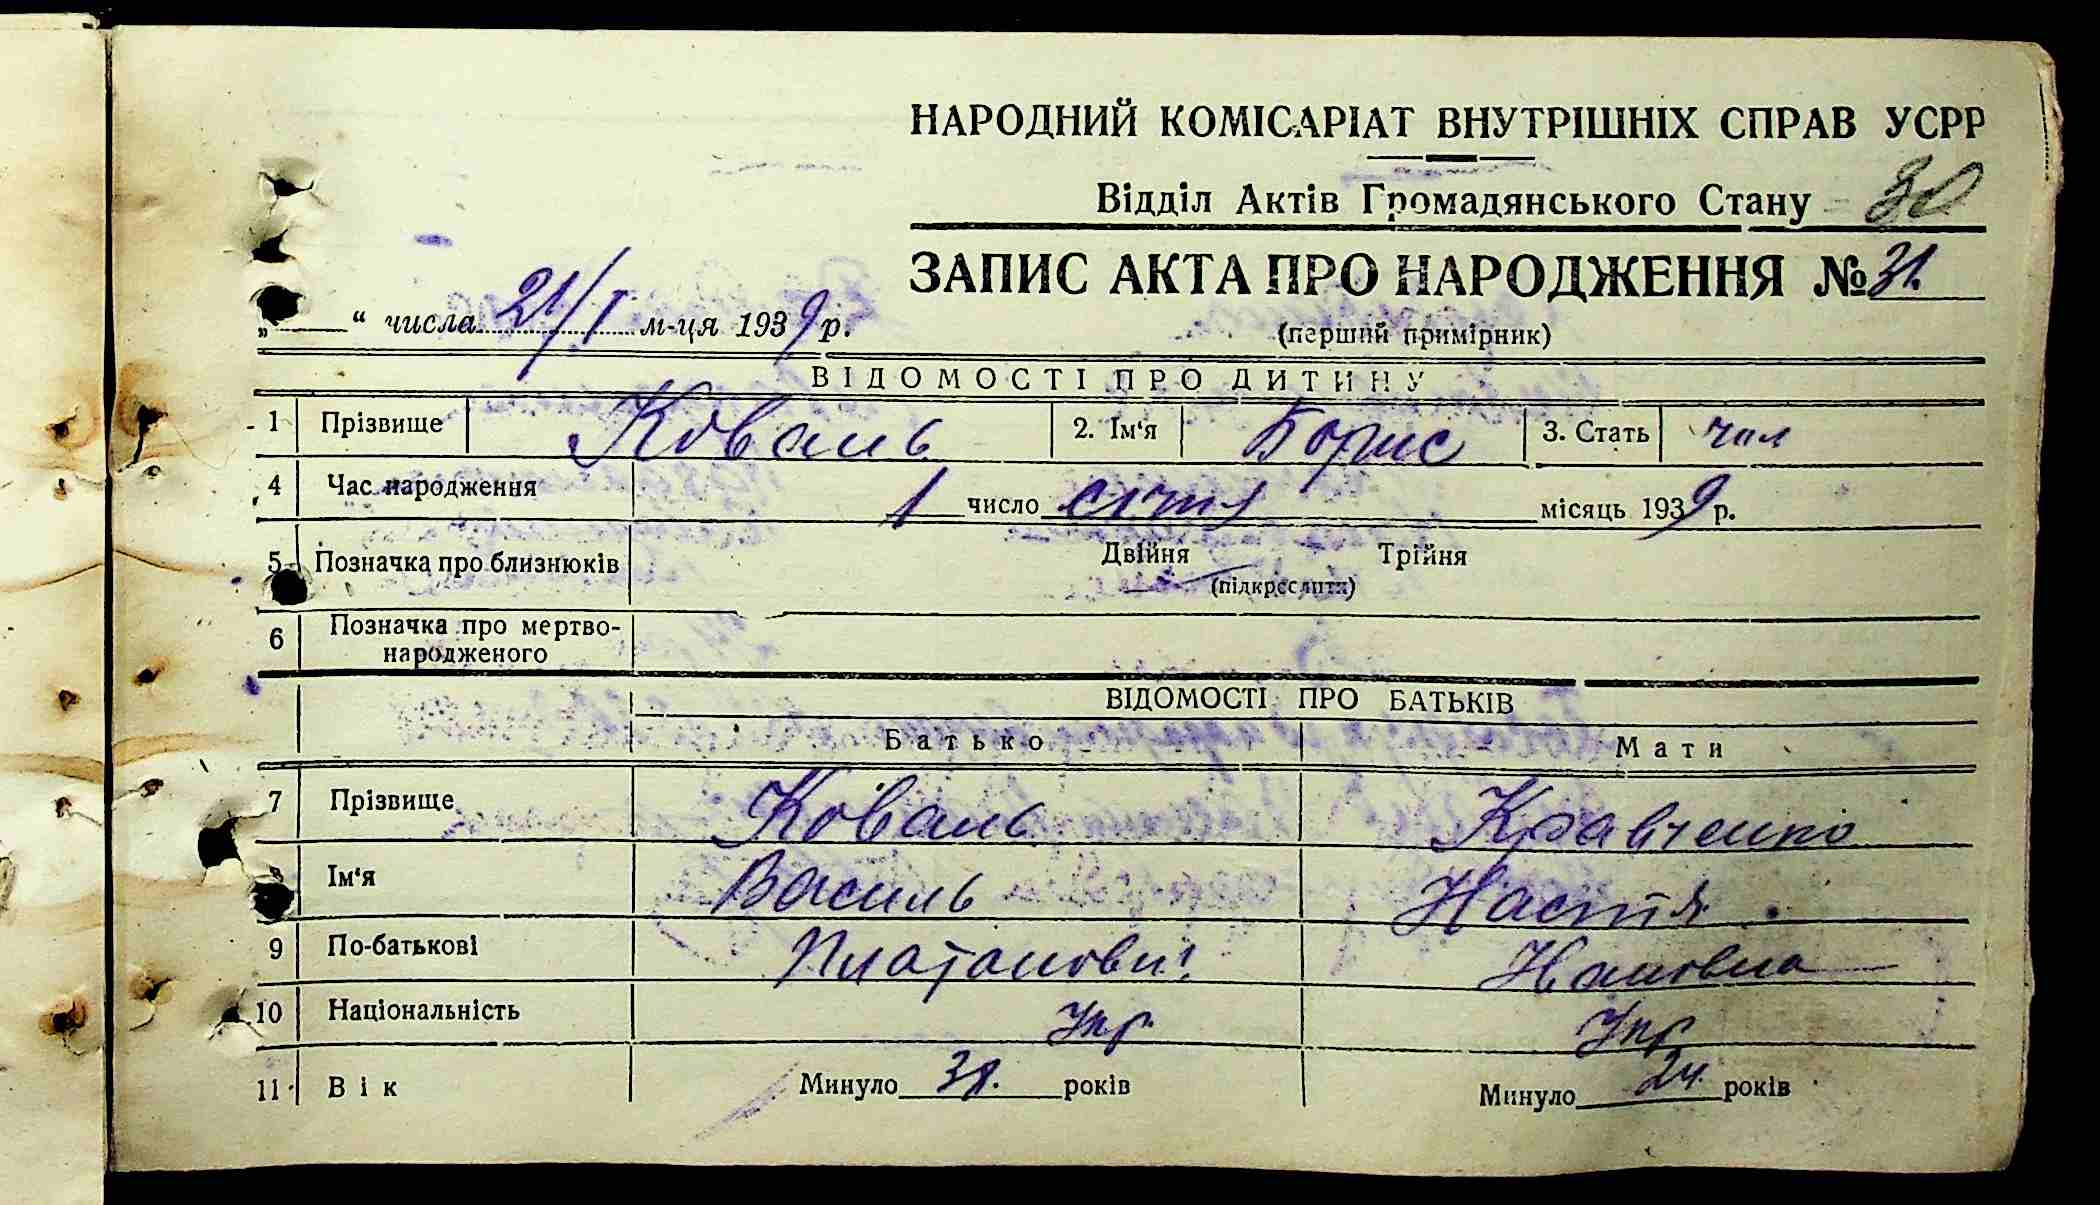 НАРОДНИЙ КОМІСАРІАТ ВНУТРІШНІХ СПРАВ УСРР
Відділ Актів Громадянського Стану 30
ЗАПИС АКТА ПРО НАРОДЖЕННЯ № 31.
„ “ числа 21/I м-ця 1939 р.
(перший примірник)
ВІДОМОСТІ ПРО ДИТИНУ
1 Прізвище Коваль 2. Ім‘я Борис 3. Стать чол
4 Час народження 1 число січня місяць 1939 р.
5 Позначка про близнюків Двійня Трійня
(підкреслити)
6 Позначка про мертво-
народженого
ВІДОМОСТІ ПРО БАТЬКІВ
Батько Мати
7 Прізвище Коваль Кравченко
8 Ім‘я Василь Настя
9 По-батькові Платанович
10 Національність Укр Укр
11 Вік Минуло 31. років Минуло 24. років